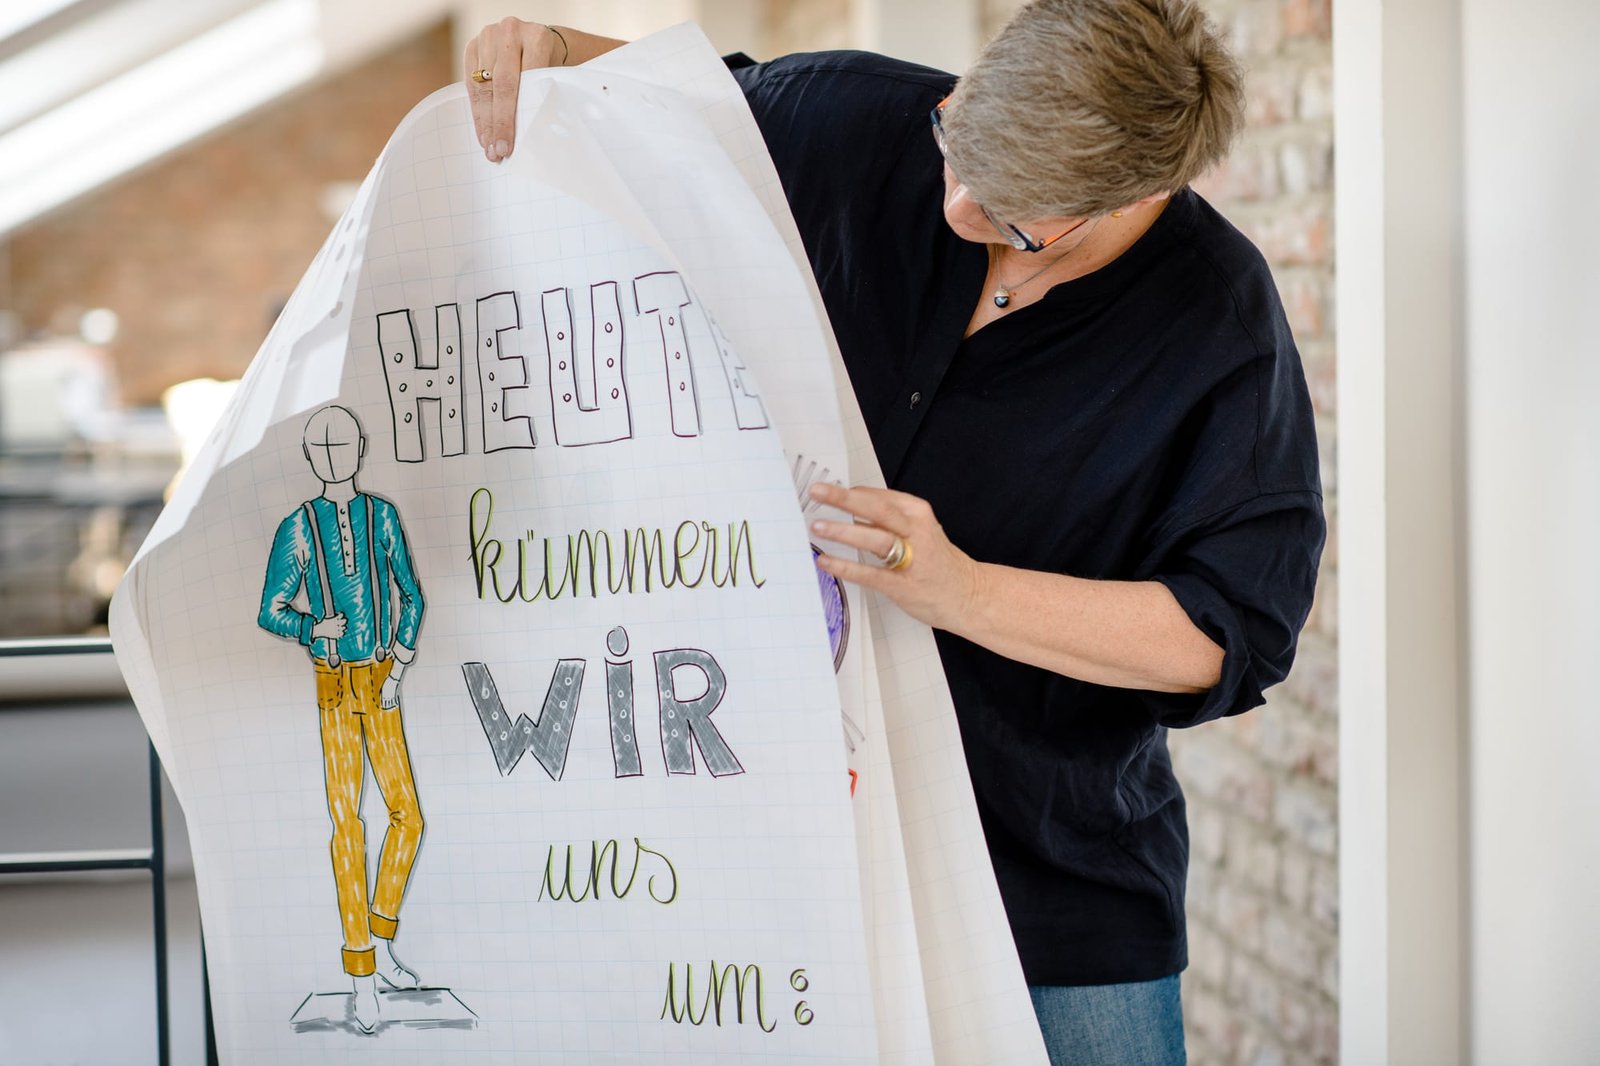 HEUTE
kümmern
WiR
uns
um: